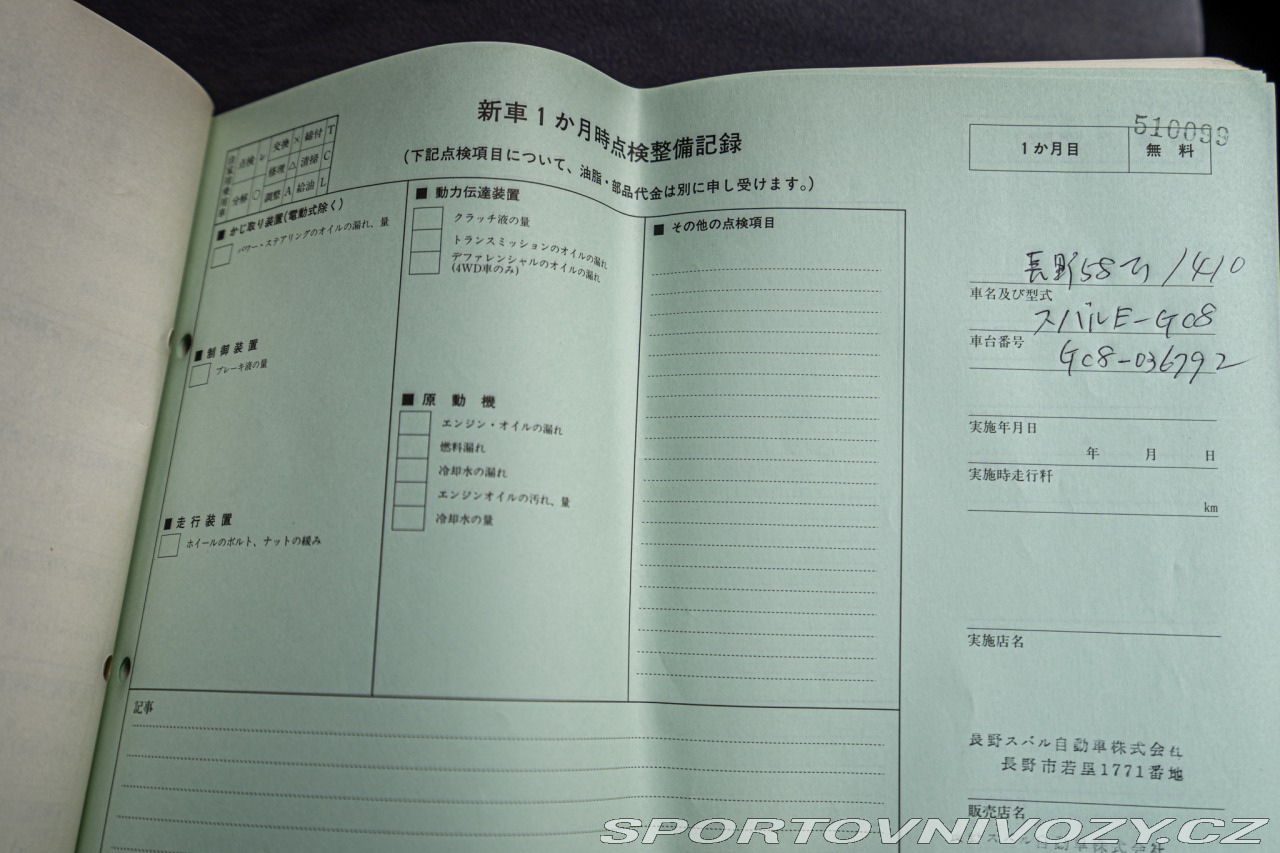 新車1か月時点検整備記録
(下記点検項目について、油脂・部品代金は別に申し受けます。)
510099
1か月目 無料
自家用乗用車
点検 レ 交換 × 締付 T
分解 ○ 修理 △ 清掃 C
調整 A 給油 L
■ かじ取り装置(電動式除く)
パワー・ステアリングのオイルの漏れ、量
■ 制御装置
ブレーキ液の量
■ 走行装置
ホイールのボルト、ナットの緩み
■ 動力伝達装置
クラッチ液の量
トランスミッションのオイルの漏れ
デファレンシャルのオイルの漏れ
(4WD車のみ)
■ 原動機
エンジン・オイルの漏れ
燃料漏れ
冷却水の漏れ
エンジンオイルの汚れ、量
冷却水の量
■ その他の点検項目
記事
長野58 1410
車名及び型式
スバルE-GC8
車台番号
GC8-036792
実施年月日
年 月 日
実施時走行粁
km
実施店名
長野スバル自動車株式会社
長野市若里1771番地
販売店名
スバル自動車株式会社
SPORTOVNIVOZY.CZ